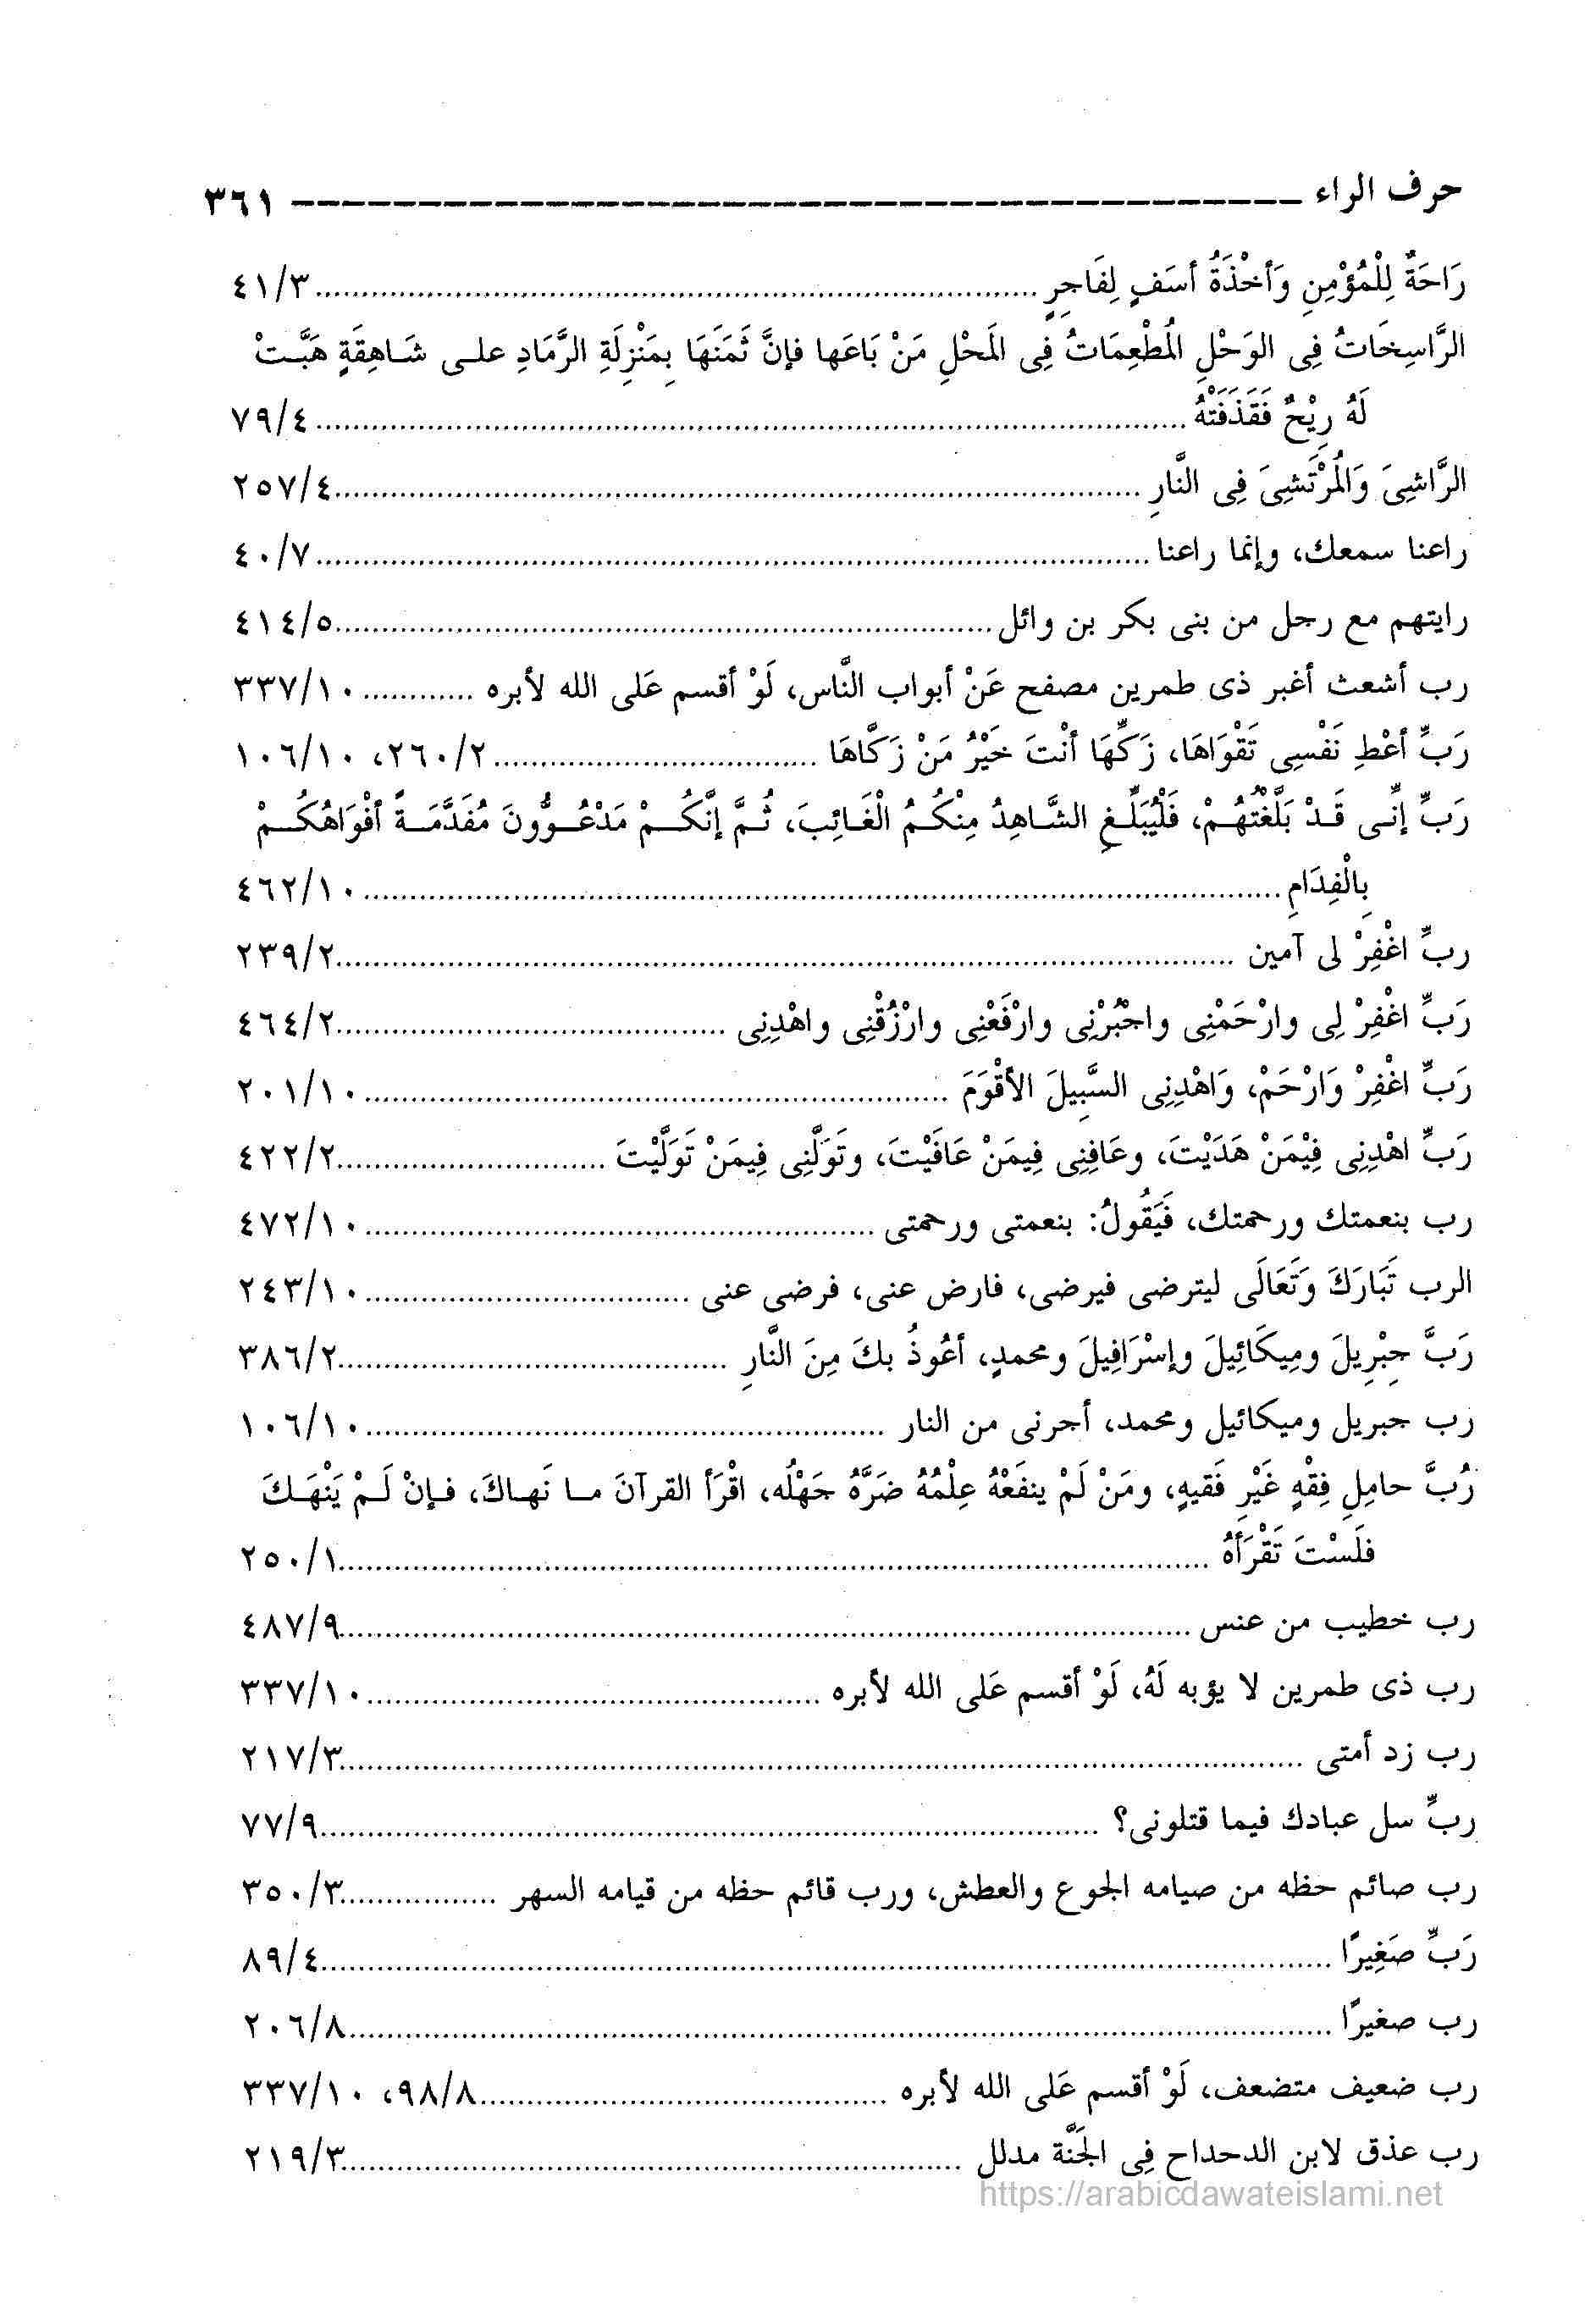 حرف الراء ــــــــــــــــــــــــــــــــــــــــ ٣٦١
رَاحَةٌ لِلْمُؤْمِنِ وَأخْذَةُ أسَفٍ لِفَاجِرٍ .......... ٤١/٣
الرَّاسِخَاتُ فِى الوَحْلِ الُمطْعِمَاتُ فِى الَمحْلِ مَنْ بَاعَها فإنَّ ثَمَنَهَا بِمَنْزِلَةِ الرَّمَادِ علـى شَـاهِقَةٍ هَبَّـتْ
لَهُ رِيْحٌ فَقَذَفَتْهُ .......... ٧٩/٤
الرَّاشِىَ وَالُمرْتَشِىَ فِى النَّارِ .......... ٢٥٧/٤
راعنا سمعك، وإنما راعنا .......... ٤٠/٧
رايتهم مع رجل من بنى بكر بن وائل .......... ٤١٤/٥
رب أشعث أغبر ذى طمرين مصفح عَنْ أبواب النَّاس، لَوْ أقسم عَلى الله لأبره .......... ٣٣٧/١٠
رَبِّ أعْطِ نَفْسِى تَقْوَاهَا، زَكِّهَا أنْتَ خَيْرُ مَنْ زَكَّاهَا .......... ٢٦٠/٢، ١٠٦/١٠
رَبِّ إنِّـى قَـدْ بَلَّغْتُهُـمْ، فَلْيُبَلِّـغِ الشَّـاهِدُ مِنْكُـمُ الْغَـائِبَ، ثُـمَّ إنَّكُـمْ مَدْعُـوُّونَ مُفَدَّمَـةً أفْوَاهُكُـمْ
بِالْفِدَامِ .......... ٤٦٢/١٠
ربِّ اغْفِرْ لى آمين .......... ٢٣٩/٢
رَبِّ اغْفِرْ لِى وارْحَمْنِى واجْبُرْنِى وارْفَعْنِى وارْزُقْنِى واهْدِنِى .......... ٤٦٤/٢
رَبِّ اغْفِرْ وَارْحَمْ، وَاهْدِنِى السَّبِيلَ الأقْوَمَ .......... ٢٠١/١٠
رَبِّ اهْدِنِى فِيْمَنْ هَدَيْتَ، وعَافِنِى فِيمَنْ عَافَيْتَ، وتَوَلَّنِى فِيمَنْ تَوَلَّيْتَ .......... ٤٢٢/٢
رب بنعمتك ورحمتك، فَيَقُولُ: بنعمتى ورحمتى .......... ٤٧٢/١٠
الرب تَبَارَكَ وَتَعَالَى ليترضى فيرضى، فارض عنى، فرضى عنى .......... ٢٤٣/١٠
رَبَّ جِبْرِيلَ ومِيكَائِيلَ وإسْرَافِيلَ ومحمدٍ، أعُوذُ بكَ مِنَ النَّارِ .......... ٣٨٦/٢
رب جبريل وميكائيل ومحمد، أجرنى من النار .......... ١٠٦/١٠
رُبَّ حامِلِ فِقْهٍ غَيْرِ فَقيهٍ، ومَنْ لَمْ ينفَعْهُ عِلْمُهُ ضَرَّهُ جَهْلُه، اقْرَأ القرآنَ مـا نَهـاكَ، فـإنْ لَـمْ يَنْهَـكَ
فلَسْتَ تَقْرَأهُ .......... ٢٥٠/١
رب خطيب من عنس .......... ٤٨٧/٩
رب ذى طمرين لا يؤبه لَهُ، لَوْ أقسم عَلى الله لأبره .......... ٣٣٧/١٠
رب زد أمتى .......... ٢١٧/٣
ربِّ سل عبادك فيما قتلونى؟ .......... ٧٧/٩
رب صائم حظه من صيامه الجوع والعطش، ورب قائم حظه من قيامه السهر .......... ٣٥٠/٣
رَبِّ صَغِيرًا .......... ٨٩/٤
رب صغيرًا .......... ٢٠٦/٨
رب ضعيف متضعف، لَوْ أقسم عَلى الله لأبره .......... ٩٨/٨، ٣٣٧/١٠
رب عذق لابن الدحداح فِى الجَنَّة مدلل .......... ٢١٩/٣
https://arabicdawateislami.net